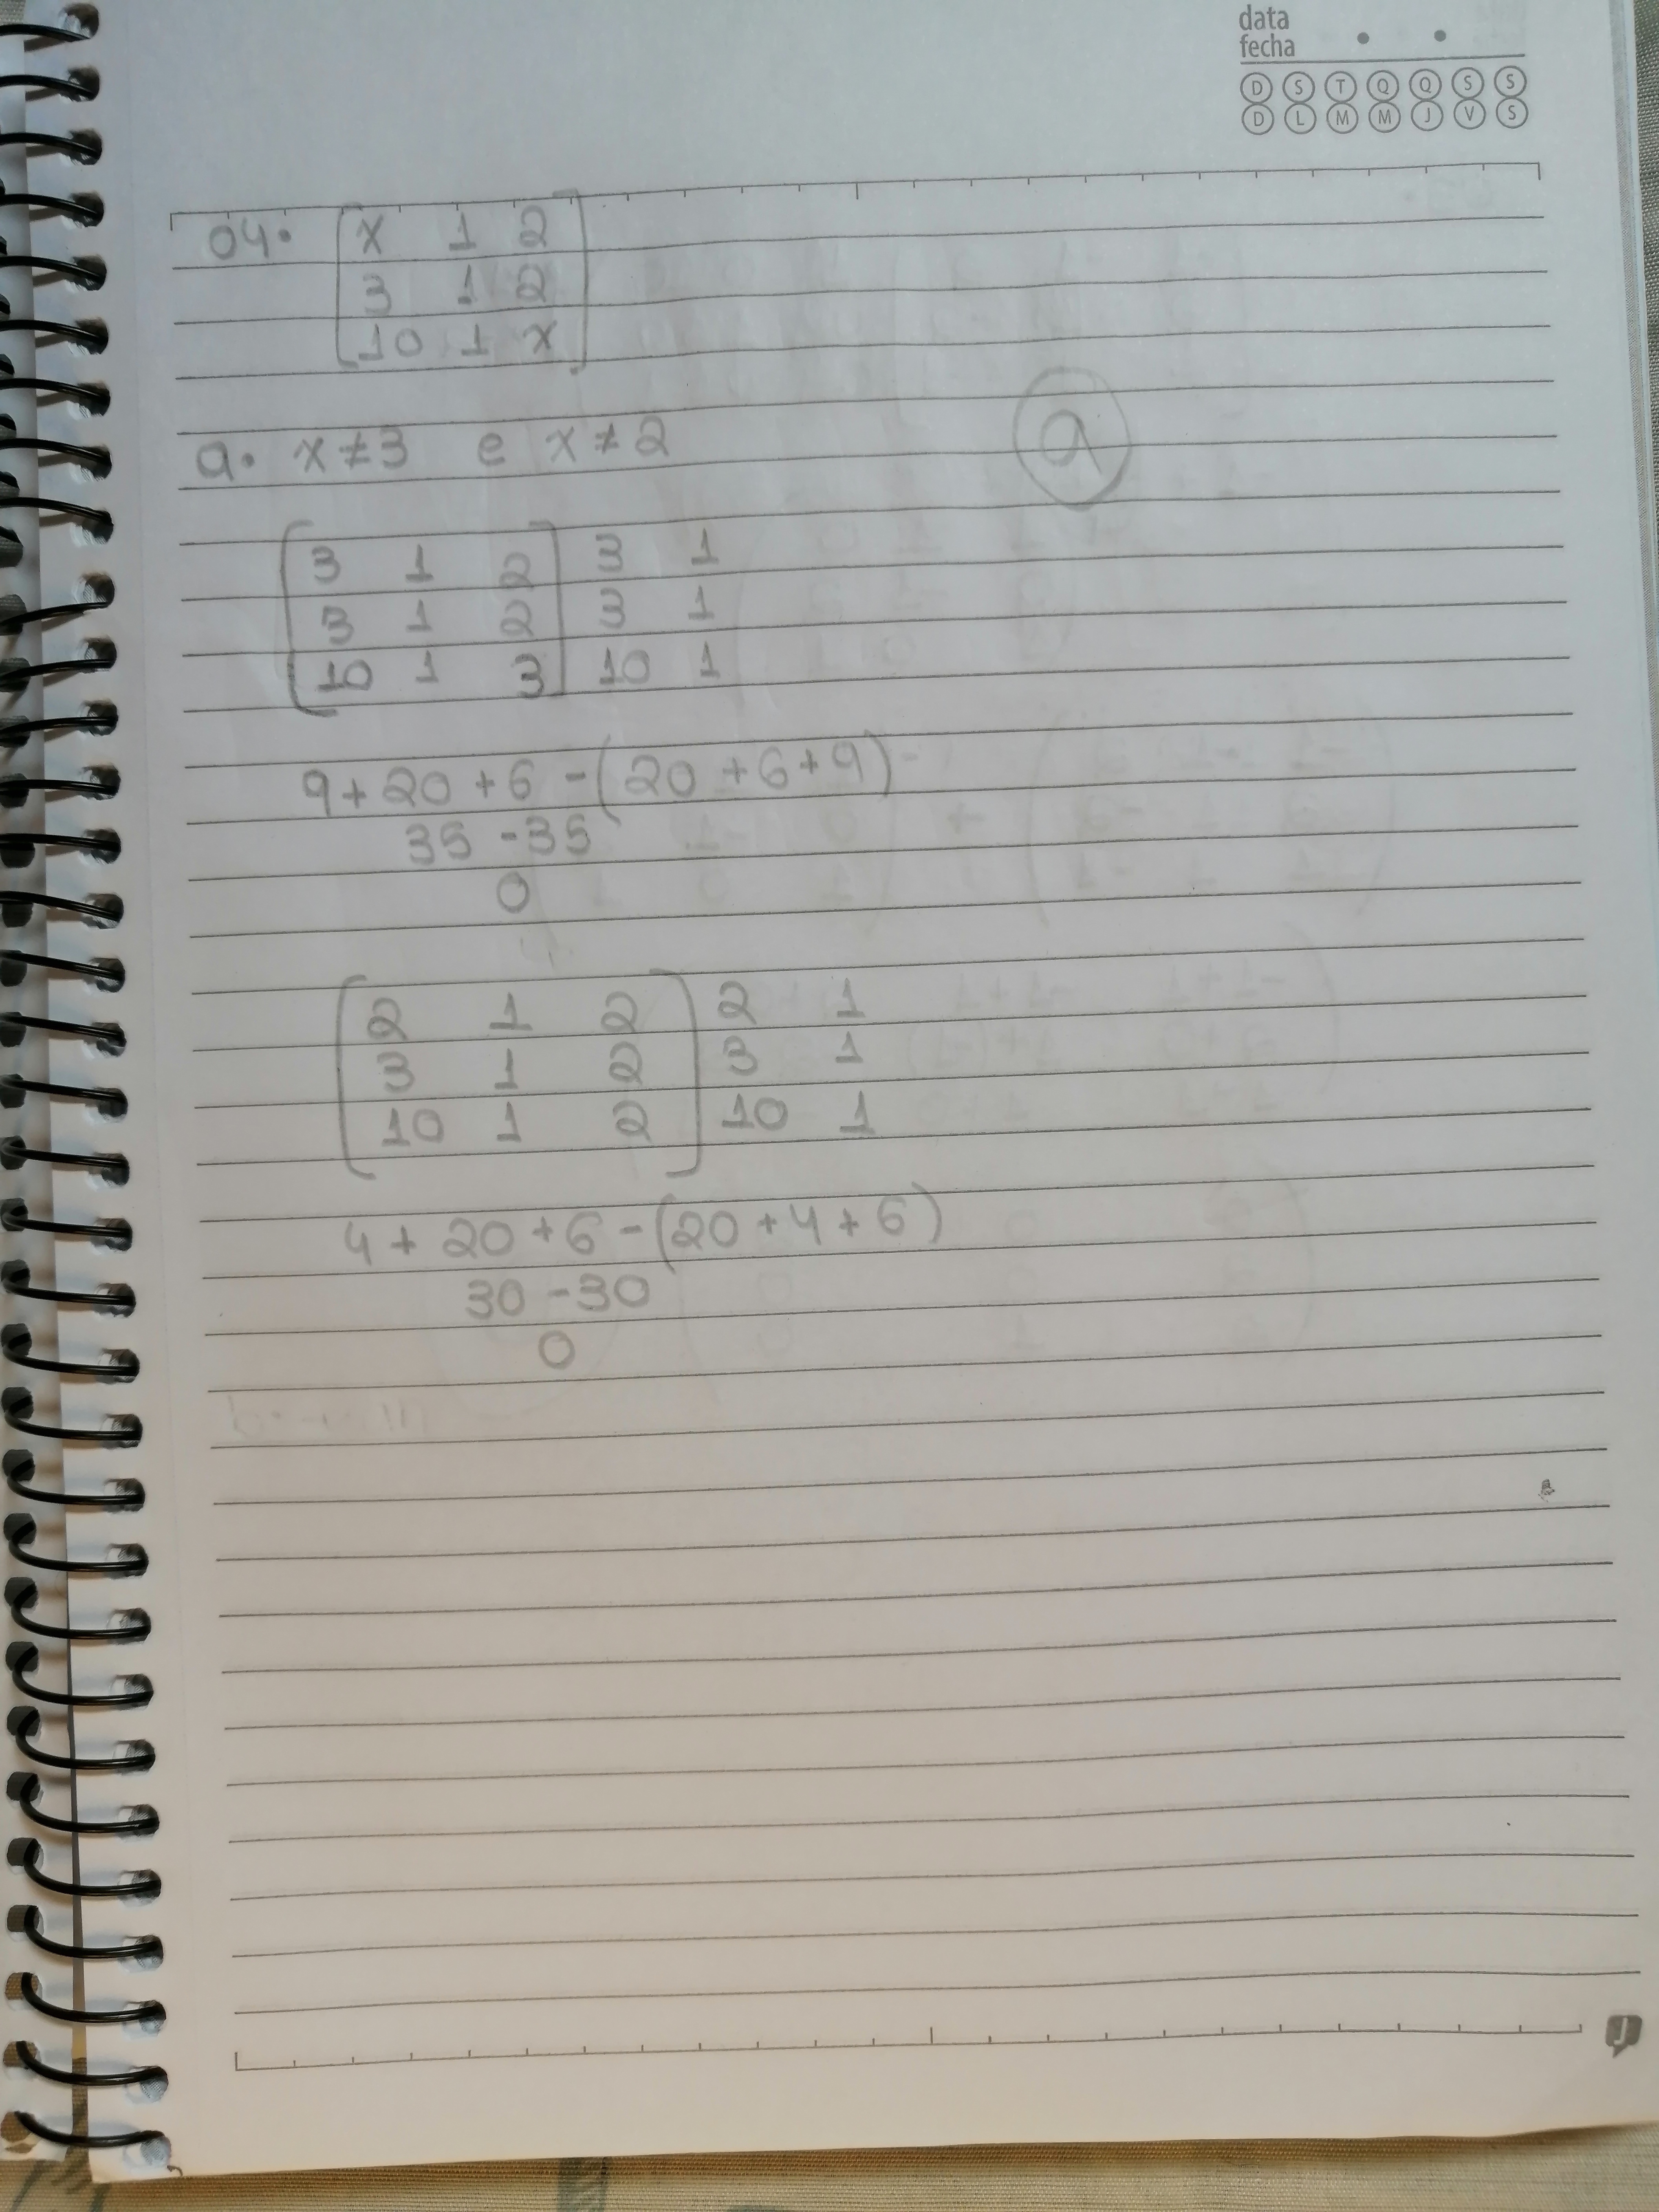 data
fecha
D S T Q Q S S
D L M M J V S
04. x 1 2
3 1 2
10 1 x
a. x ≠ 3 e x ≠ 2
a
3 1 2 3 1
3 1 2 3 1
10 1 3 10 1
9 + 20 + 6 - (20 + 6 + 9)
35 - 35
0
2 1 2 2 1
3 1 2 3 1
10 1 2 10 1
4 + 20 + 6 - (20 + 4 + 6)
30 - 30
0
J